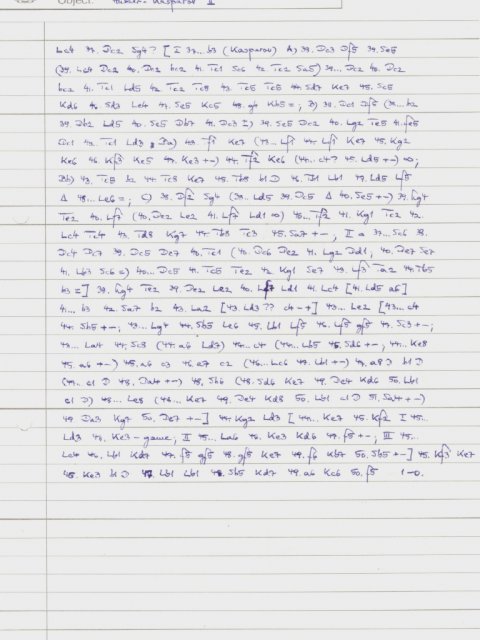 Object:
Lc4 37. Dc2 Sg4? [I 37... b3 (Kasparov) A) 38. Dc3 Df5 39. Se5
(39. Lc4 Dc2 40. Dc2 bc2 41. Tc1 Sc6 42. Tc2 Sa5) 39... Dc2 40. Dc2
bc2 41. Tc1 Ld5 42. Tc2 Tc8 43. Tc5 Tc5 44. Sd7 Ke7 45. Sc5
Kd6 46. Sd3 Lc4 47. Se5 Kc5 48. g4 Kb5 =; B) 38. Dc1 Df5 (38... b2
39. Db2 Ld5 40. Se5 Db7 41. Dc3 I) 39. Se5 Dc2 40. Lg2 Te5 41. fe5
Dc1 42. Tc1 Ld3; Ba) 43. Tf1 Ke7 (43... Lf1 44. Lf1 Ke7 45. Kg2
Ke6 46. Kf3 Ke5 47. Ke3 +-) 44. Tf2 Ke6 (44... c4? 45. Ld5 +-) ∞;
Bb) 43. Tc5 b2 44. Tc8 Ke7 45. Tb8 b1D 46. Tb1 Lb1 47. Ld5 Lf5
Δ 48... Le6 =; C) 38. Df2 Sg4 (38... Ld5 39. Dc5 Δ 40. Se5 +-) 39. hg4
Te2 40. Lf7 (40. De2 Le2 41. Lf7 Ld1 ∞) 40... Tf2 41. Kg1 Tc2 42.
Lc4 Tc4 43. Td8 Kg7 44. Tb8 Tc3 45. Sa7 +-; II a 37... Sc6 38.
Dc4 Dc7 39. Dc5 De7 40. Tc1 (40. Dc6 De2 41. Lg2 Dd1; 40. De7 Se7
41. Lb7 Sc6 =) 40... Dc5 41. Tc5 Te2 42. Kg1 Se7 43. Lf3 Ta2 44. Tb5
h3 =] 38. hg4 Te2 39. De2 Le2 40. Lf7 Ld1 41. Lc4 [41. Ld5 a6]
41... b3 42. Sa7 b2 43. La2 [43. Ld3?? c4 -+] 43... Le2 [43... c4
44. Sb5 +-; 43... Lg4 44. Sb5 Le6 45. Lb1 Lf5 46. Lf5 gf5 47. Sc3 +-;
43... La4 44. Sc8 (44. a6 Ld7) 44... c4 (44... Lb5 45. Sd6 +-; 44... Ke8
45. a6 +-) 45. a6 c3 46. a7 c2 (46... Lc6 47. Lb1 +-) 47. a8D b1D
(47... c1D 48. Da4 +-) 48. Sb6 (48. Sd6 Ke7 49. De4 Kd6 50. Lb1
c1D) 48... Le8 (48... Ke7 49. De4 Kd8 50. Lb1 c1D 51. Da4 +-)
49. Da3 Kg7 50. De7 +-] 44. Kg2 Ld3 [44... Ke7 45. Kf2 I 45...
Ld3 46. Ke3 - game; II 45... La6 46. Ke3 Kd6 47. f5 +-; III 45...
Lc4 46. Lb1 Kd7 47. f5 gf5 48. gf5 Ke7 49. f6 Kb7 50. Sb5 +-] 45. Kf3 Ke7
46. Ke3 b1D 47. Lb1 Lb1 48. Sb5 Kd7 49. a6 Kc6 50. f5 1-0.